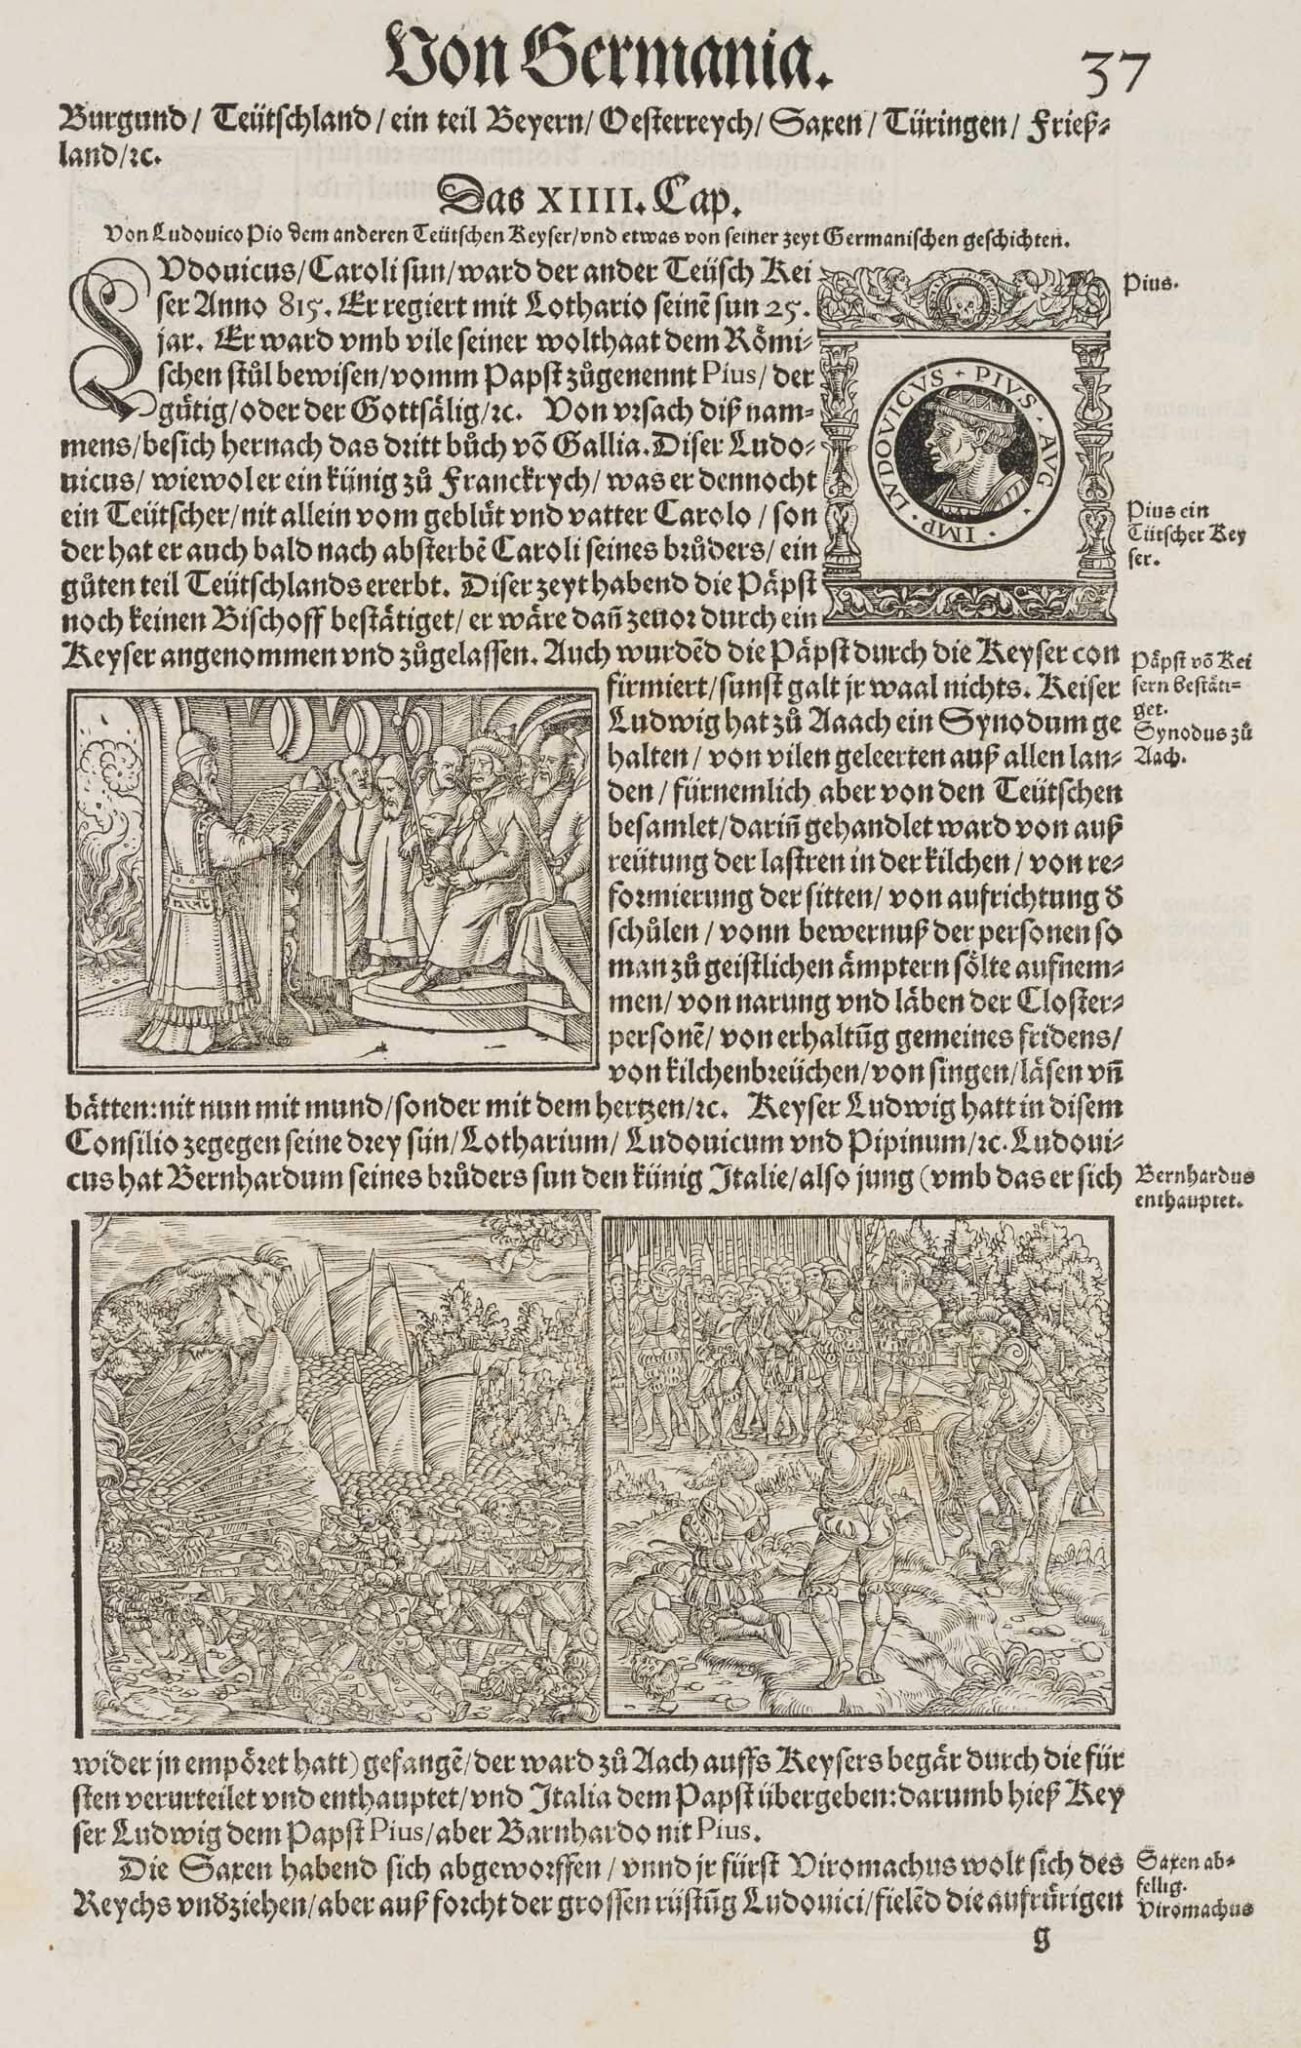 Von Germania. 37
Burgund/ Teütschland/ ein teil Beyern/ Oesterreych/ Saxen/ Türingen/ Frieß-
land/ꝛc.
Das XIIII. Cap.
Von Ludouico Pio dem anderen Teütschen Keyser/vnd etwas von seiner zeyt Germanischen geschichten.
LVdouicus/Caroli sun/ward der ander Teüsch Kei
ser Anno 815. Er regiert mit Lothario seinẽ sun 25.
jar. Er ward vmb vile seiner wolthaat dem Römi-
schen stůl bewisen/vomm Papst zůgenennt Pius/ der
gůtig/oder der Gottsälig/ꝛc. Von vrsach diß nam-
mens/besich hernach das dritt bůch võ Gallia. Diser Ludo-
uicus/ wiewol er ein künig zů Franckrych/ was er dennocht
ein Teütscher/nit allein vom geblüt vnd vatter Carolo/son
der hat er auch bald nach absterbẽ Caroli seines brůders/ ein
gůten teil Teütschlands ererbt. Diser zeyt habend die Päpst
noch keinen Bischoff bestätiget/ er wäre dañ zeuor durch ein
Keyser angenommen vnd zůgelassen. Auch wurdẽd die Päpst durch die Keyser con
firmiert/sunst galt jr waal nichts. Keiser
Ludwig hat zů Aaach ein Synodum ge
halten/ von vilen geleerten auß allen lan-
den/ fürnemlich aber von den Teütschen
besamlet/dariñ gehandlet ward von auß
reütung der lastren in der kilchen/ von re-
formierung der sitten/ von aufrichtung đ
schůlen/ vonn bewernuß der personen so
man zů geistlichen ämptern sölte aufnem-
men/ von narung vnd läben der Closter-
personẽ/ von erhaltũg gemeines fridens/
von kilchenbreüchen/von singen/läsen vñ
bätten: nit nun mit mund/sonder mit dem hertzen/ꝛc. Keyser Ludwig hatt in disem
Consilio zegegen seine drey sün/Lotharium/ Ludouicum vnd Pipinum/ꝛc. Ludoui-
cus hat Bernhardum seines brůders sun den künig Italie/also jung (vmb das er sich
wider jn empöret hatt) gefangẽ/der ward zů Aach auffs Keysers begär durch die für
sten verurteilet vnd enthauptet/vnd Italia dem Papst übergeben: darumb hieß Key
ser Ludwig dem Papst Pius/aber Barnhardo nit Pius.
Die Saxen habend sich abgeworffen/ vnnd jr fürst Viromachus wolt sich des
Reychs vnđziehen/aber auß forcht der grossen rüstũg Ludouici/fielẽd die aufrürigen
g
Pius.
IMP. LVDOVICVS + PIVS. AVG.
Pius ein
Tütscher Key
ser.
Päpst võ Kei
sern bestäti-
get.
Synodus zů
Aach.
Bernhardus
enthauptet.
Saxen ab-
fellig.
Viromachus